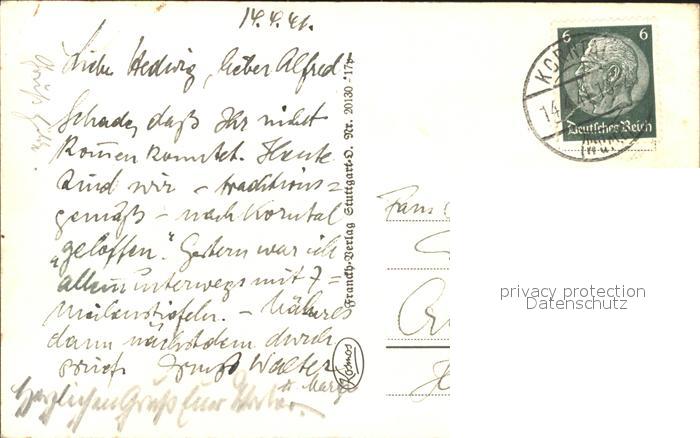 14.4.41.
Liebe Hedwig, lieber Alfred
Schade, daß Ihr nicht
kommen konntet. Heute
sind wir – traditions=
gemäß – nach Korntal
„geloffen“. Gestern war ich
allein unterwegs mit 7=
meilenstiefeln. – Näheres
dann nächstdem durch
Brief. Walter
u. Marg
Herzlichen Gruß Euer
Franckh-Verlag Stuttgart-O. Nr. 20130 -17p-
Kosmos
Fam.
6 6
Deutsches Reich
KORNTAL
14.4.
(Württ
privacy protection
Datenschutz